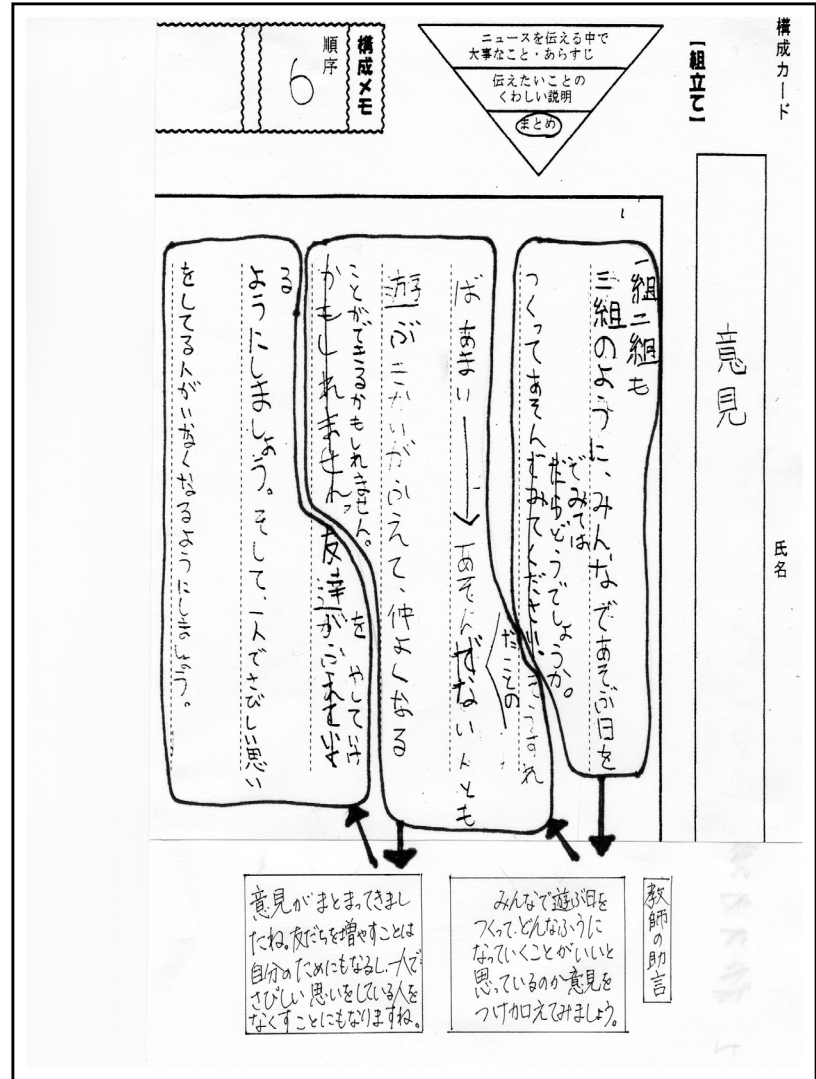 構成カード
【組立て】
意見
氏名
ニュースを伝える中で
大事なこと・あらすじ
伝えたいことの
くわしい説明
まとめ
構成メモ
順序
6
一組二組も
三組のように、みんなであそぶ日を
でみては
だらどうでしょうか。
つくってあそんでみてください。こうすれ
だことの
ばあまり→あそんでない人とも
遊ぶきかいがふえて、仲よくなる
ことができるかもしれません。
かもしれません。友達が
を やしていけ
る
ようにしましょう。そして、一人でさびしい思い
をしてる人がいなくなるようにしましょう。
教師の助言
みんなで遊ぶ日を
つくって、どんなふうに
なっていくことがいいと
思っているのか意見を
つけ加えてみましょう。
意見がまとまってきまし
たね。友だちを増やすことは
自分のためにもなるし、一人で
さびしい思いをしている人を
なくすことにもなりますね。